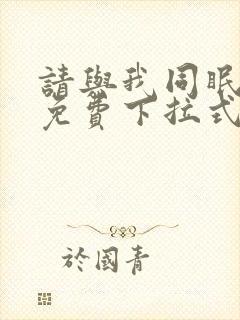 請與我同眠
免費下拉式
於國青